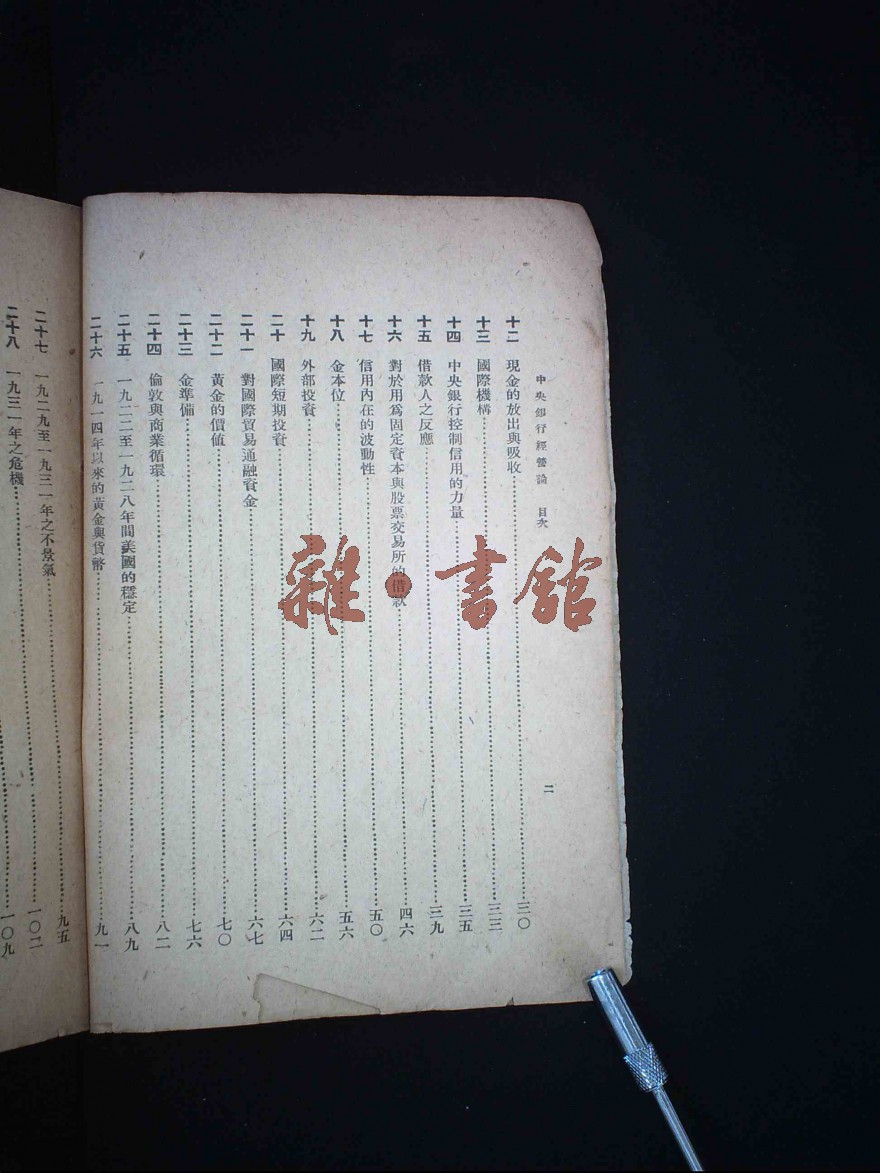 中央銀行經營論　目次
二
十二　現金的放出與吸收…………三〇
十三　國際機構…………三三
十四　中央銀行控制信用的力量…………三五
十五　借款人之反應…………三九
十六　對於用爲固定資本與股票交易所的借款…………四六
十七　信用內在的波動性…………五〇
十八　金本位…………五六
十九　外部投資…………六二
二十　國際短期投資…………六四
二十一　對國際貿易通融資金…………六七
二十二　黃金的價値…………七〇
二十三　金準備…………七六
二十四　倫敦與商業循環…………八二
二十五　一九二二至一九二八年間美國的穩定…………八九
二十六　一九一四年以來的黃金與貨幣…………九一
二十七　一九二九至一九三一年之不景氣…………九五
二十八　一九三一年之危機…………一〇二
一〇九
雜·書館